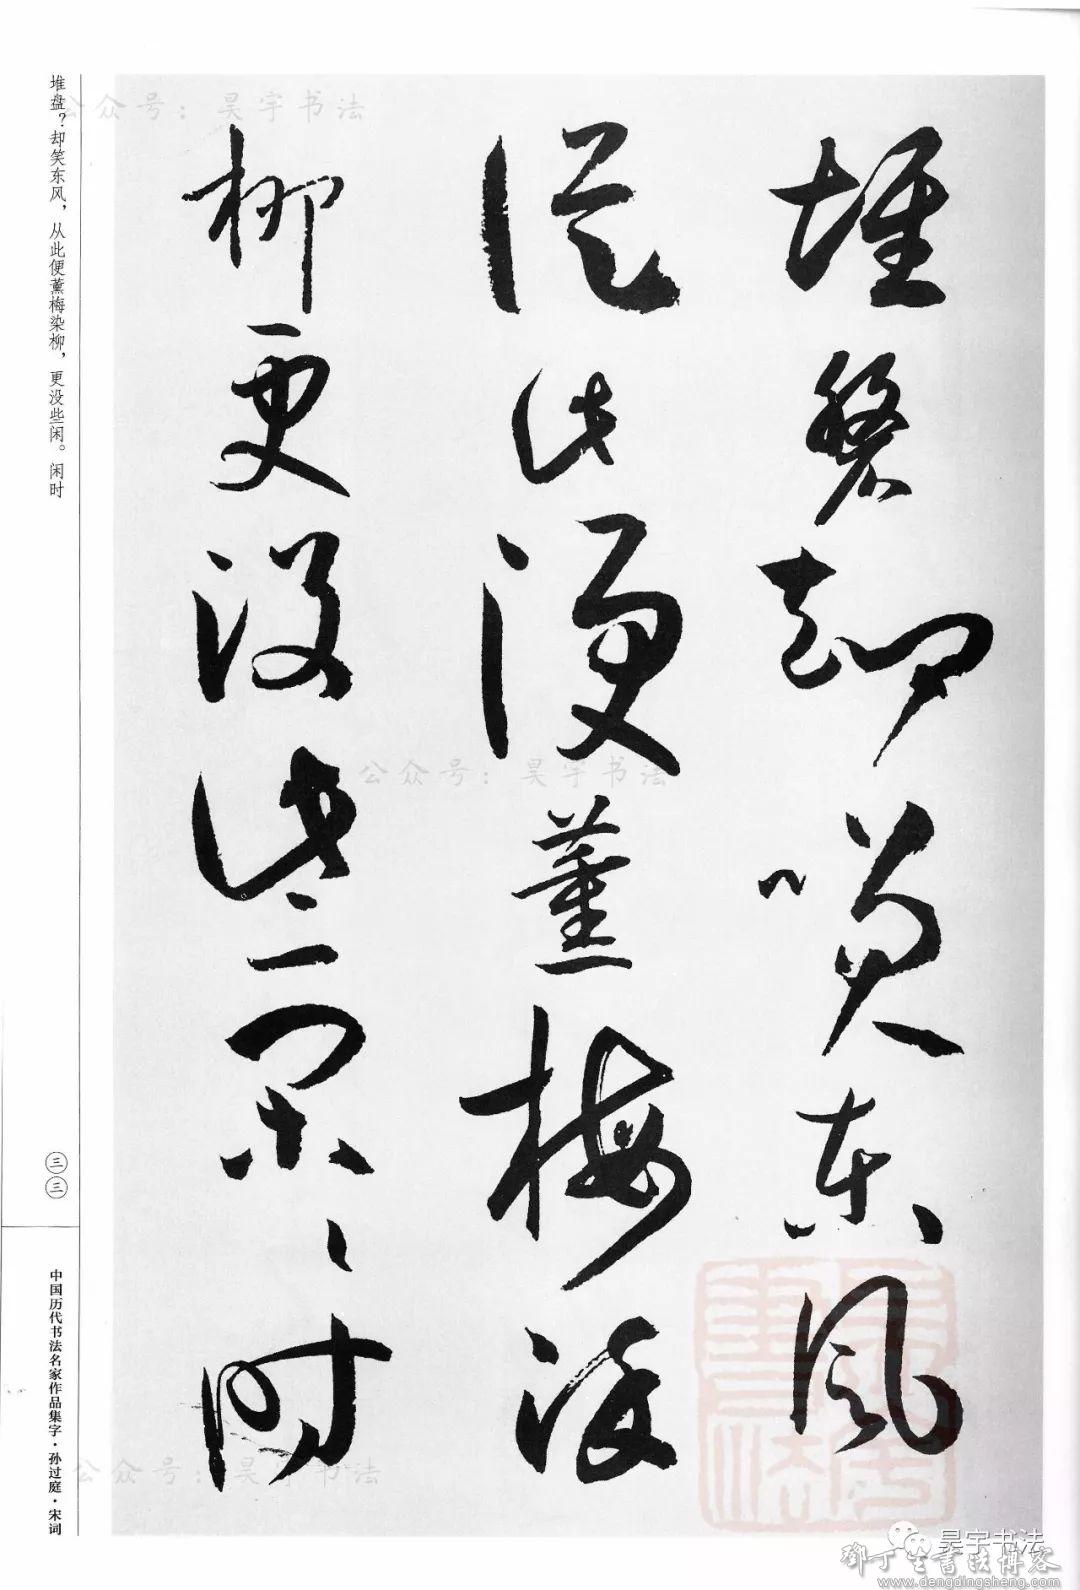 堆盘却笑东风
从此便薰梅染
柳更没些闲闲时
堆盘？却笑东风，从此便薰梅染柳，更没些闲。闲时
三三
中国历代书法名家作品集字·孙过庭·宋词
公众号：昊宇书法
公众号：昊宇书法
公众号：昊宇书法
昊宇书法
邓丁生书法博客
www.dengdingsheng.com